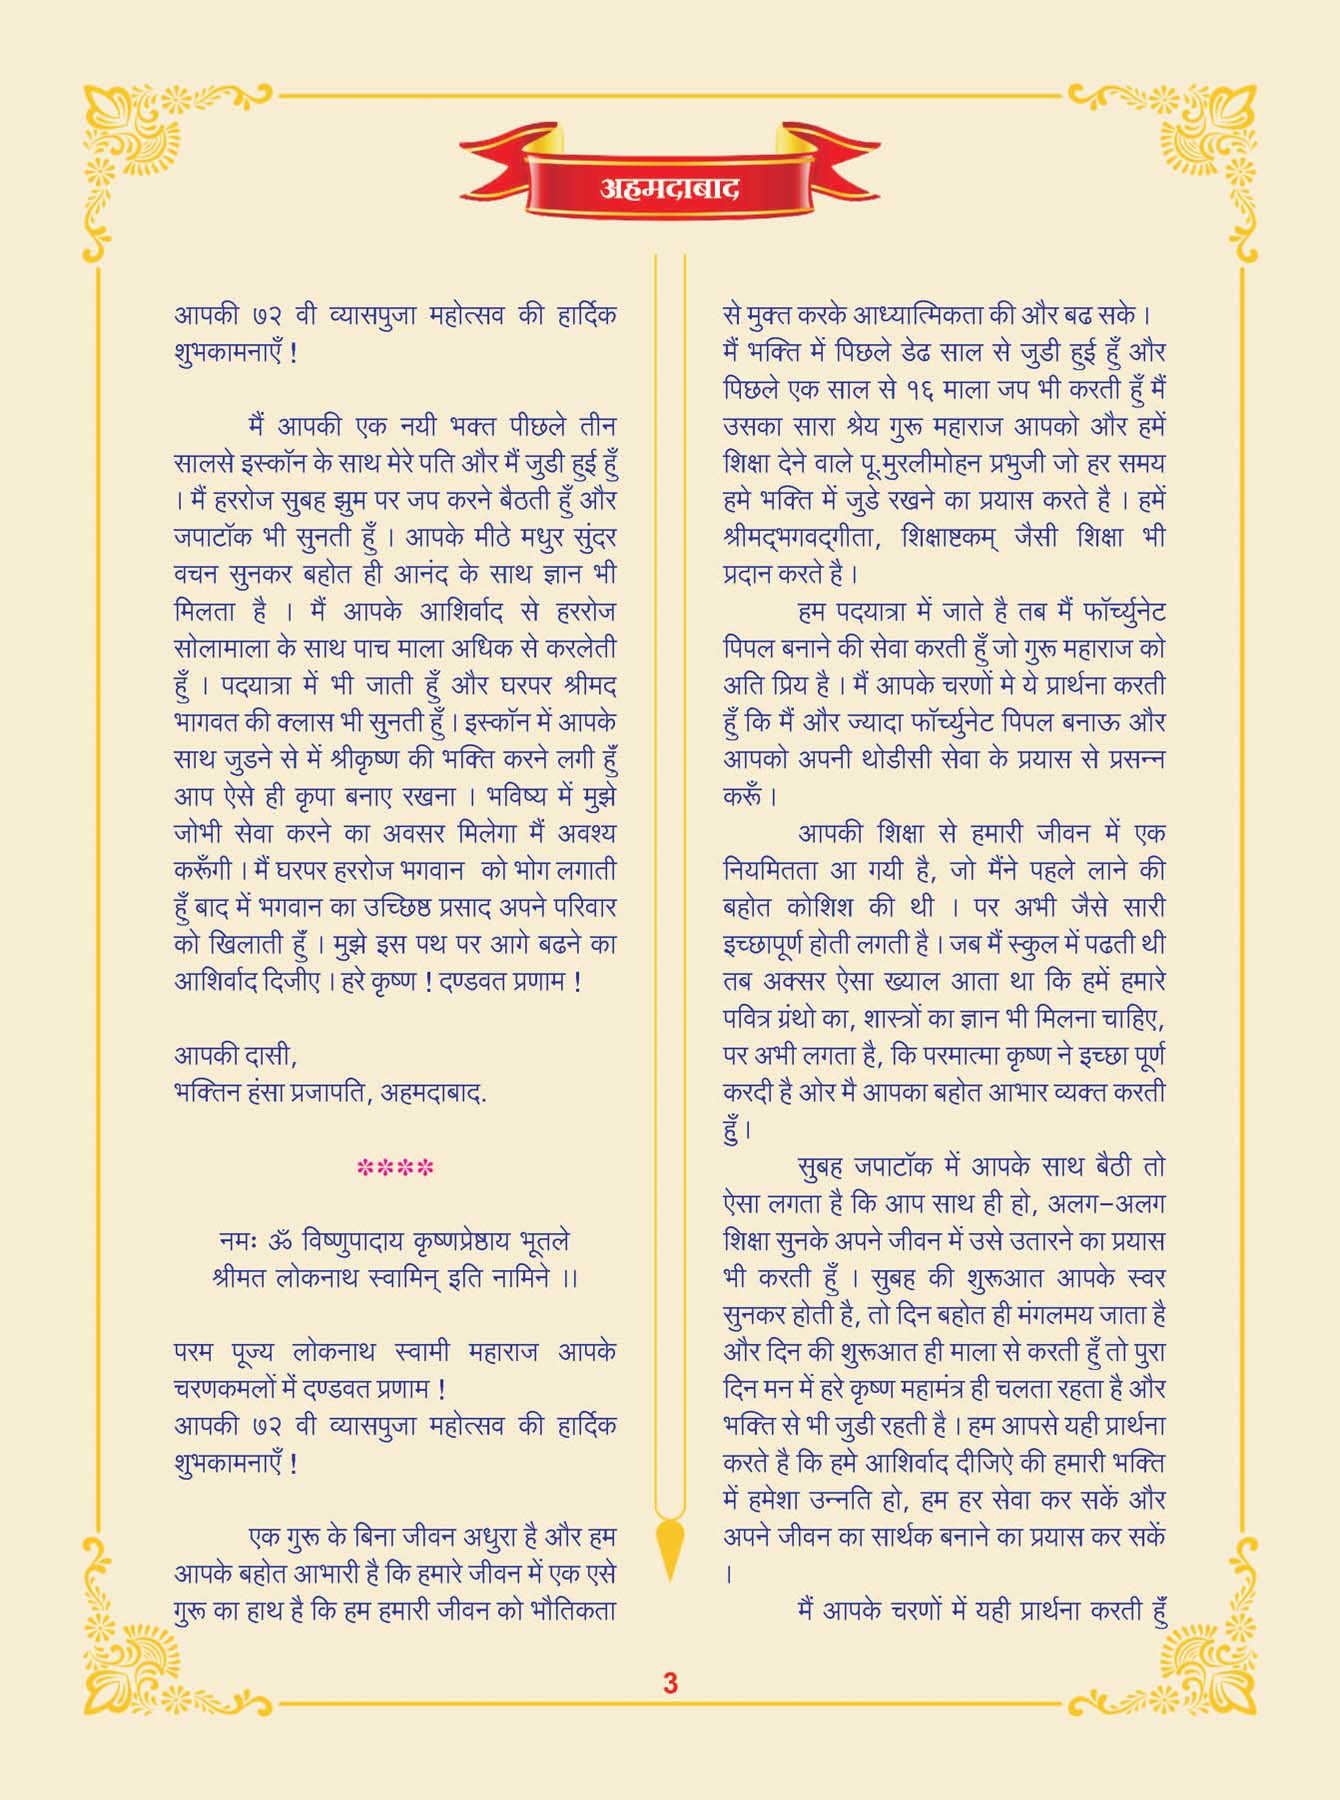 अहमदाबाद
आपकी ७२ वी व्यासपुजा महोत्सव की हार्दिक
शुभकामनाएँ !
मैं आपकी एक नयी भक्त पीछले तीन
सालसे इस्कॉन के साथ मेरे पति और मैं जुडी हुई हुँ
। मैं हररोज सुबह झुम पर जप करने बैठती हुँ और
जपाटॉक भी सुनती हुँ । आपके मीठे मधुर सुंदर
वचन सुनकर बहोत ही आनंद के साथ ज्ञान भी
मिलता है । मैं आपके आशिर्वाद से हररोज
सोलामाला के साथ पाच माला अधिक से करलेती
हुँ । पदयात्रा में भी जाती हुँ और घरपर श्रीमद
भागवत की क्लास भी सुनती हुँ । इस्कॉन में आपके
साथ जुडने से में श्रीकृष्ण की भक्ति करने लगी हुँ
आप ऐसे ही कृपा बनाए रखना । भविष्य में मुझे
जोभी सेवा करने का अवसर मिलेगा मैं अवश्य
करूँगी । मैं घरपर हररोज भगवान को भोग लगाती
हुँ बाद में भगवान का उच्छिष्ठ प्रसाद अपने परिवार
को खिलाती हुँ । मुझे इस पथ पर आगे बढने का
आशिर्वाद दिजीए । हरे कृष्ण ! दण्डवत प्रणाम !
आपकी दासी,
भक्तिन हंसा प्रजापति, अहमदाबाद.
****
नमः ॐ विष्णुपादाय कृष्णप्रेष्ठाय भूतले
श्रीमत लोकनाथ स्वामिन् इति नामिने ।।
परम पूज्य लोकनाथ स्वामी महाराज आपके
चरणकमलों में दण्डवत प्रणाम !
आपकी ७२ वी व्यासपुजा महोत्सव की हार्दिक
शुभकामनाएँ !
एक गुरू के बिना जीवन अधुरा है और हम
आपके बहोत आभारी है कि हमारे जीवन में एक एसे
गुरू का हाथ है कि हम हमारी जीवन को भौतिकता
से मुक्त करके आध्यात्मिकता की और बढ सके ।
मैं भक्ति में पिछले डेढ साल से जुडी हुई हुँ और
पिछले एक साल से १६ माला जप भी करती हुँ मैं
उसका सारा श्रेय गुरू महाराज आपको और हमें
शिक्षा देने वाले पू.मुरलीमोहन प्रभुजी जो हर समय
हमे भक्ति में जुडे रखने का प्रयास करते है । हमें
श्रीमद्‌भगवद्‌गीता, शिक्षाष्टकम् जैसी शिक्षा भी
प्रदान करते है ।
हम पदयात्रा में जाते है तब मैं फॉर्च्युनेट
पिपल बनाने की सेवा करती हुँ जो गुरू महाराज को
अति प्रिय है । मैं आपके चरणों मे ये प्रार्थना करती
हुँ कि मैं और ज्यादा फॉर्च्युनेट पिपल बनाऊ और
आपको अपनी थोडीसी सेवा के प्रयास से प्रसन्न
करूँ ।
आपकी शिक्षा से हमारी जीवन में एक
नियमितता आ गयी है, जो मैंने पहले लाने की
बहोत कोशिश की थी । पर अभी जैसे सारी
इच्छापूर्ण होती लगती है । जब मैं स्कुल में पढती थी
तब अक्सर ऐसा ख्याल आता था कि हमें हमारे
पवित्र ग्रंथो का, शास्त्रों का ज्ञान भी मिलना चाहिए,
पर अभी लगता है, कि परमात्मा कृष्ण ने इच्छा पूर्ण
करदी है ओर मै आपका बहोत आभार व्यक्त करती
हुँ ।
सुबह जपाटॉक में आपके साथ बैठी तो
ऐसा लगता है कि आप साथ ही हो, अलग-अलग
शिक्षा सुनके अपने जीवन में उसे उतारने का प्रयास
भी करती हुँ । सुबह की शुरूआत आपके स्वर
सुनकर होती है, तो दिन बहोत ही मंगलमय जाता है
और दिन की शुरूआत ही माला से करती हुँ तो पुरा
दिन मन में हरे कृष्ण महामंत्र ही चलता रहता है और
भक्ति से भी जुडी रहती है । हम आपसे यही प्रार्थना
करते है कि हमे आशिर्वाद दीजिऐ की हमारी भक्ति
में हमेशा उन्नति हो, हम हर सेवा कर सकें और
अपने जीवन का सार्थक बनाने का प्रयास कर सकें
।
मैं आपके चरणों में यही प्रार्थना करती हुँ
3